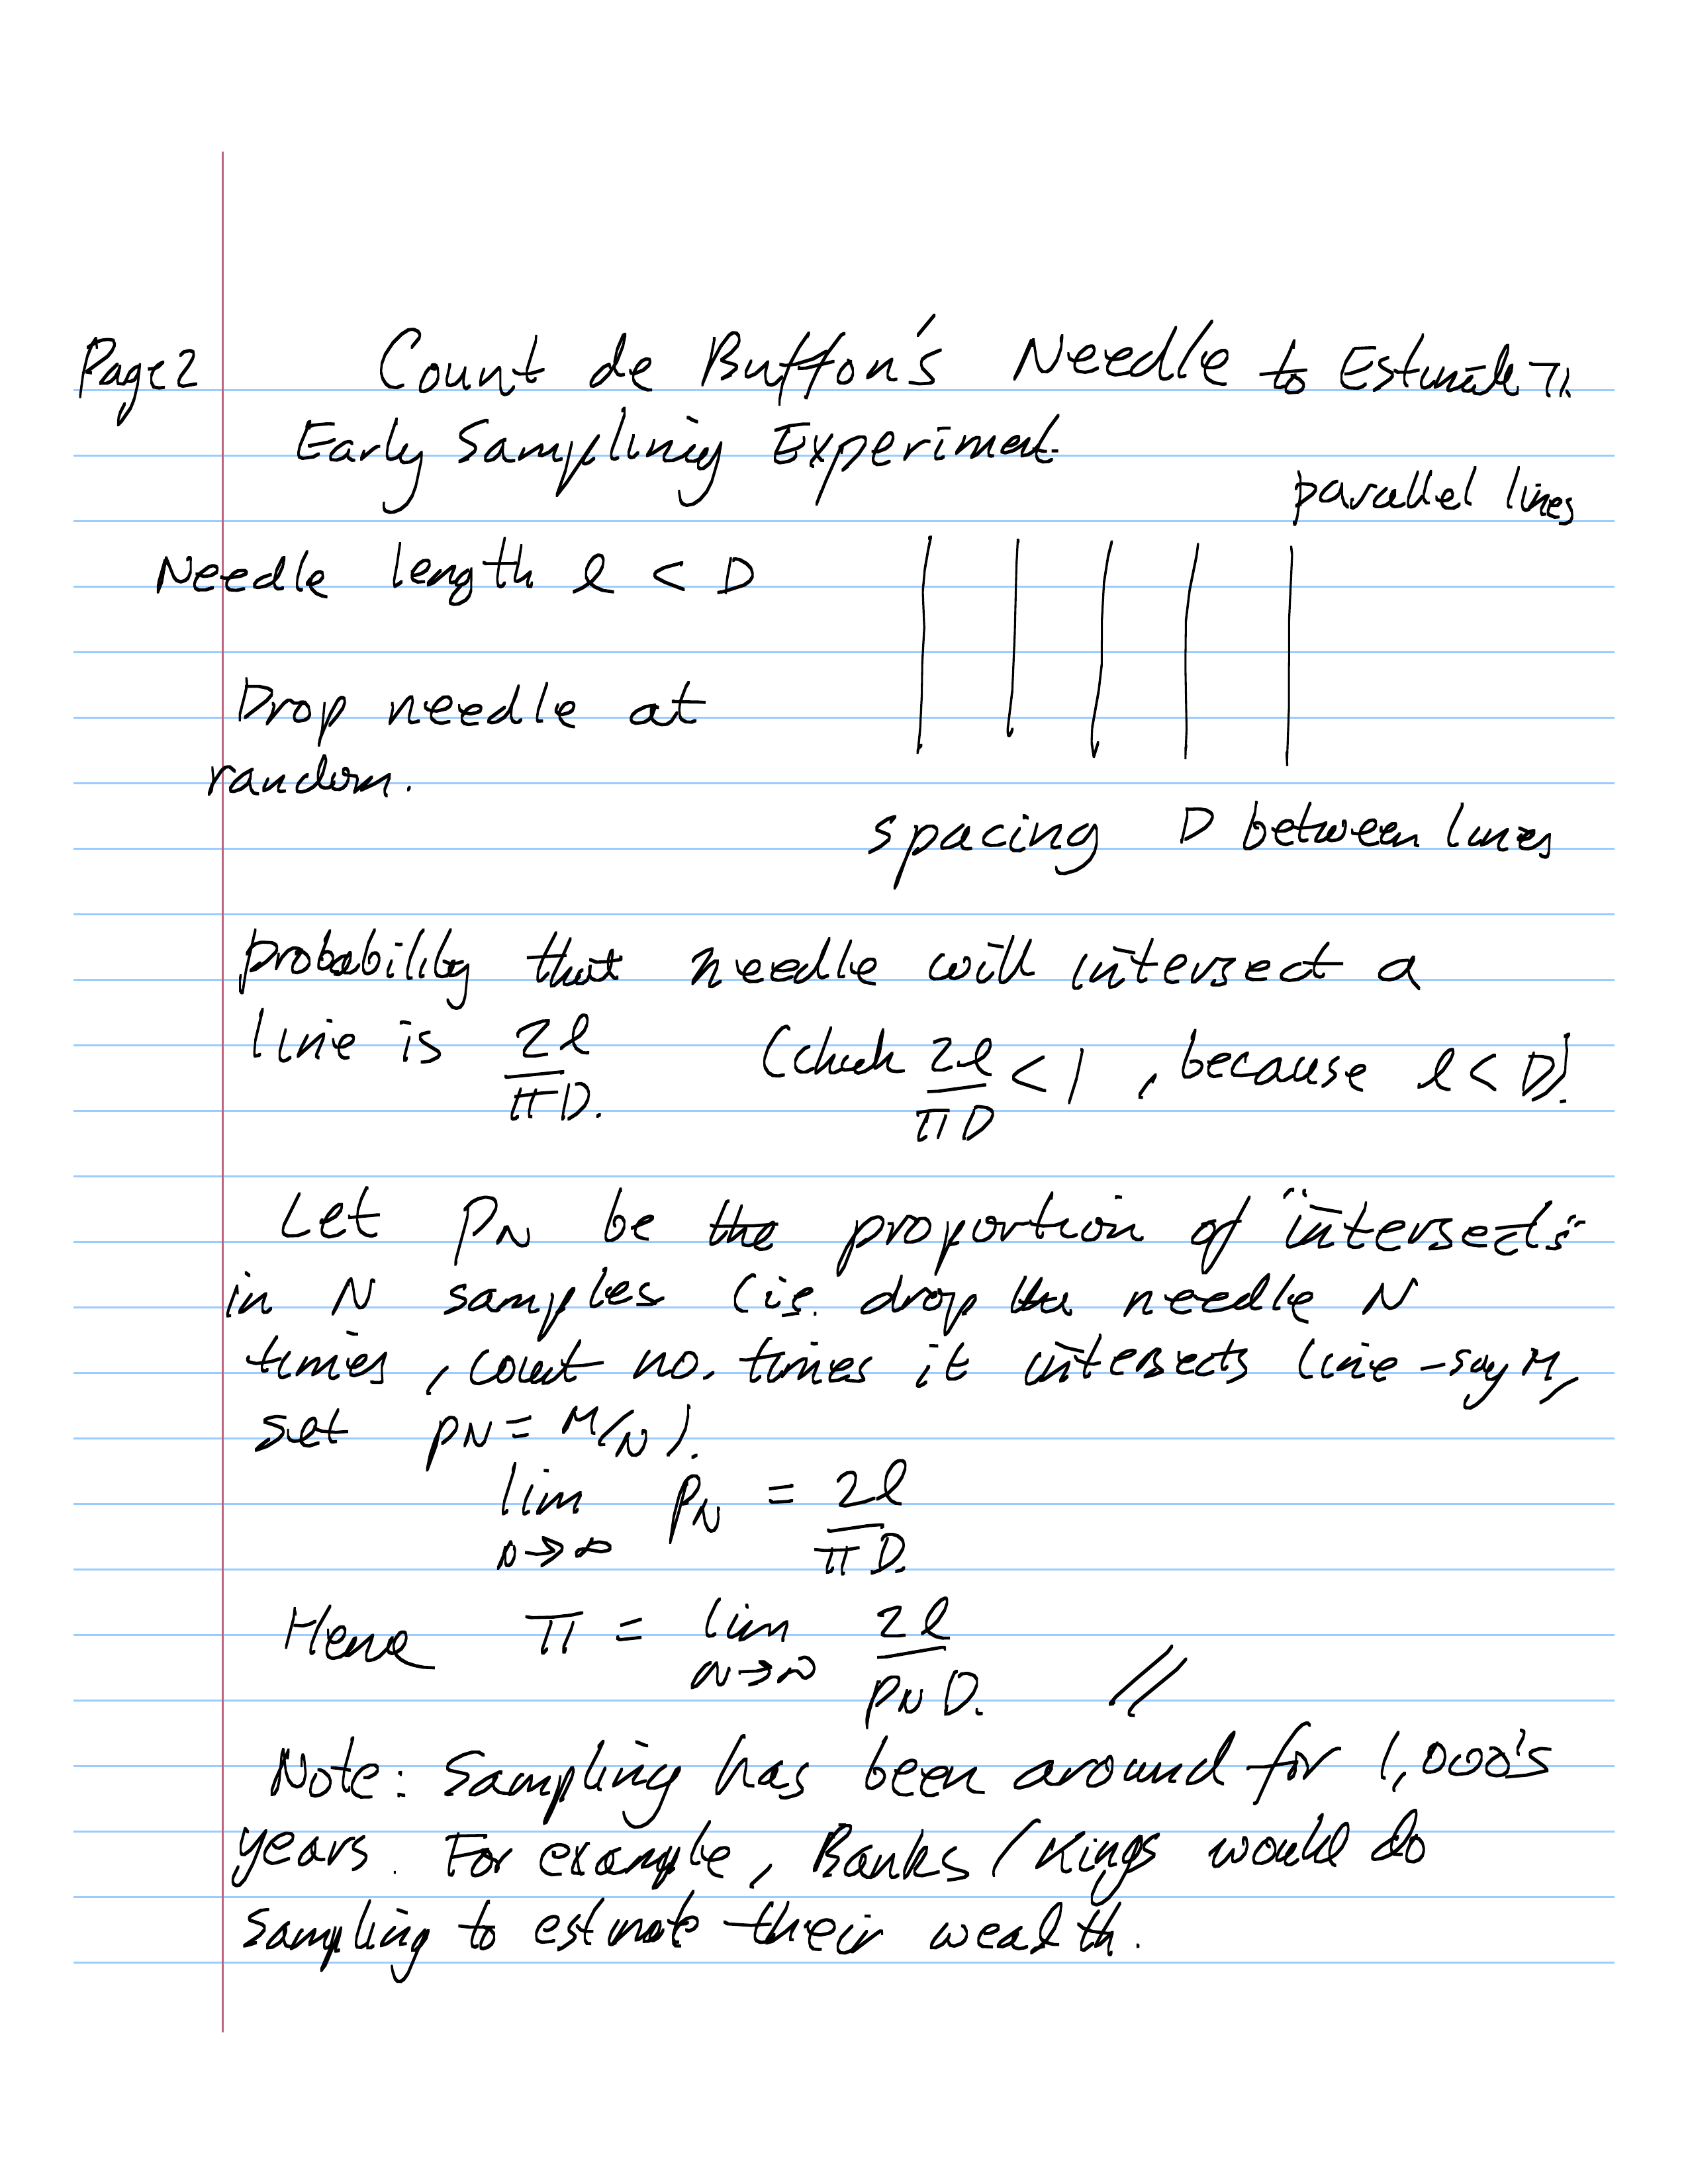 Page 2
Count de Buffon's Needle to Estimate π.
Early Sampling Experiment.
parallel lines
Needle length l < D
Drop needle at
random.
spacing D between lines
probability that needle will intersect a
line is 2l/πD. (check 2l/πD < 1, because l < D).
Let PN be the proportion of "intersects"
in N samples (ie. drop the needle N
times, count no. times it intersects line – say M,
set PN = M/N).
lim n→∞ PN = 2l/πD.
Hence π = lim n→∞ 2l/PN D. //
Note: Sampling has been around for 1,000's
years. For example, Banks / Kings would do
sampling to estimate their wealth.